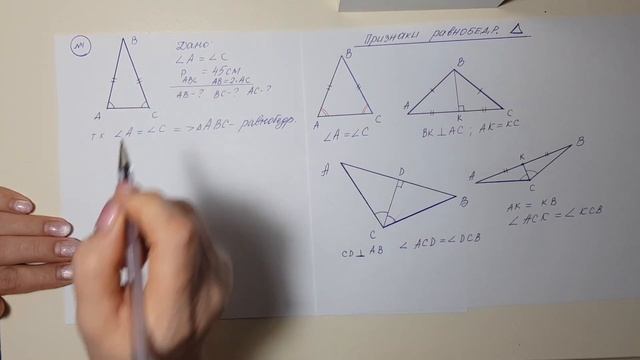 №1
B
A
C
Дано:
∠A = ∠C
P = 45см
ABC AB=2·AC
AB-? BC-? AC-?
т.к ∠A = ∠C => △ABC - равнобедр.
Признаки равнобедр. △
B
A
C
∠A = ∠C
B
A
K
C
BK ⊥ AC ; AK = KC
A
D
B
C
CD ⊥ AB ∠ACD = ∠DCB
B
K
A
C
AK = KB
∠ACK = ∠KCB